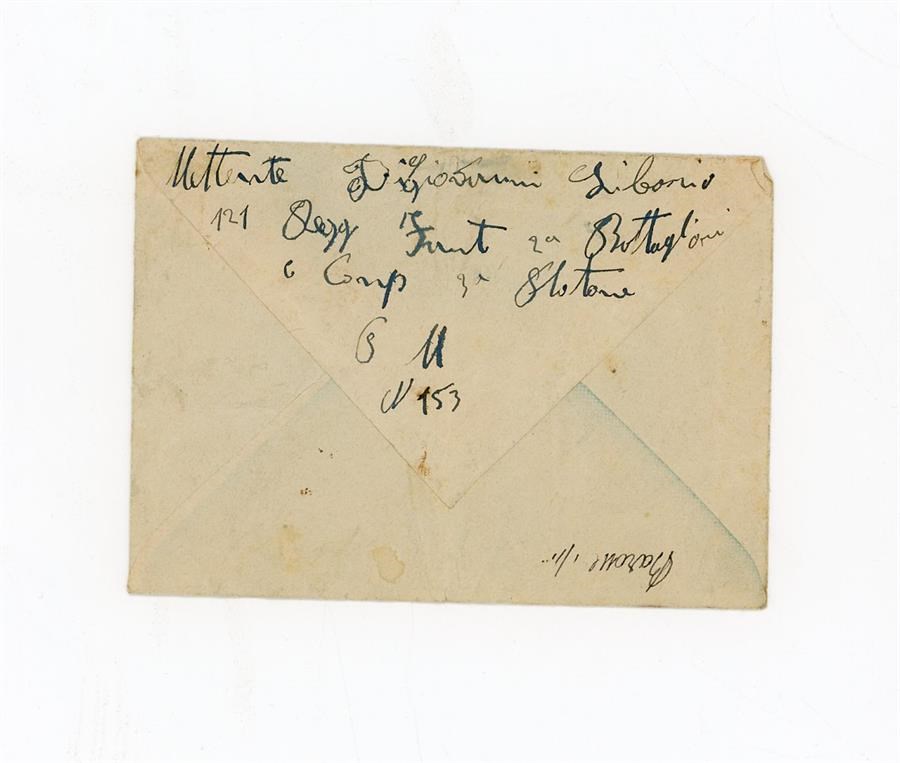 Mettente Di Giovanni Liborio
121 Regg Fant 2a Battaglioni
6 Comp 3a Plotone
P M
N 153